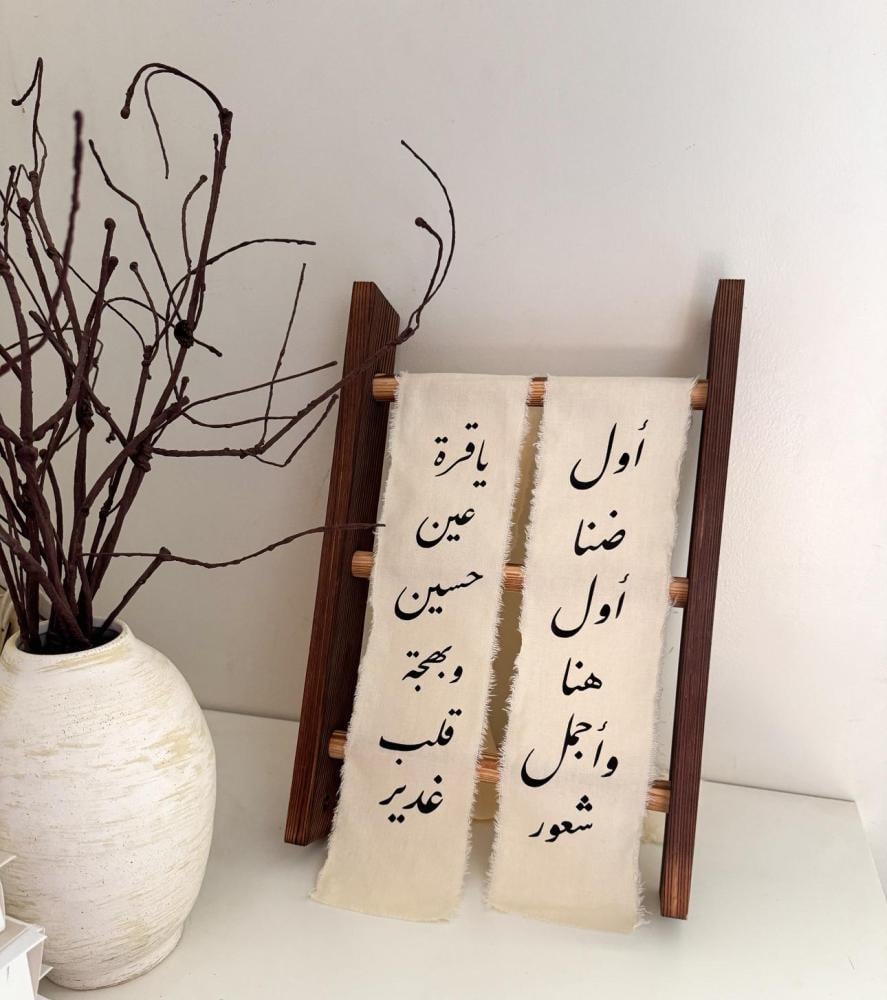 أول
ضنا
أول
هنا
وأجمل
شعور
ياقرة
عين
حسين
وبهجة
قلب
غدير